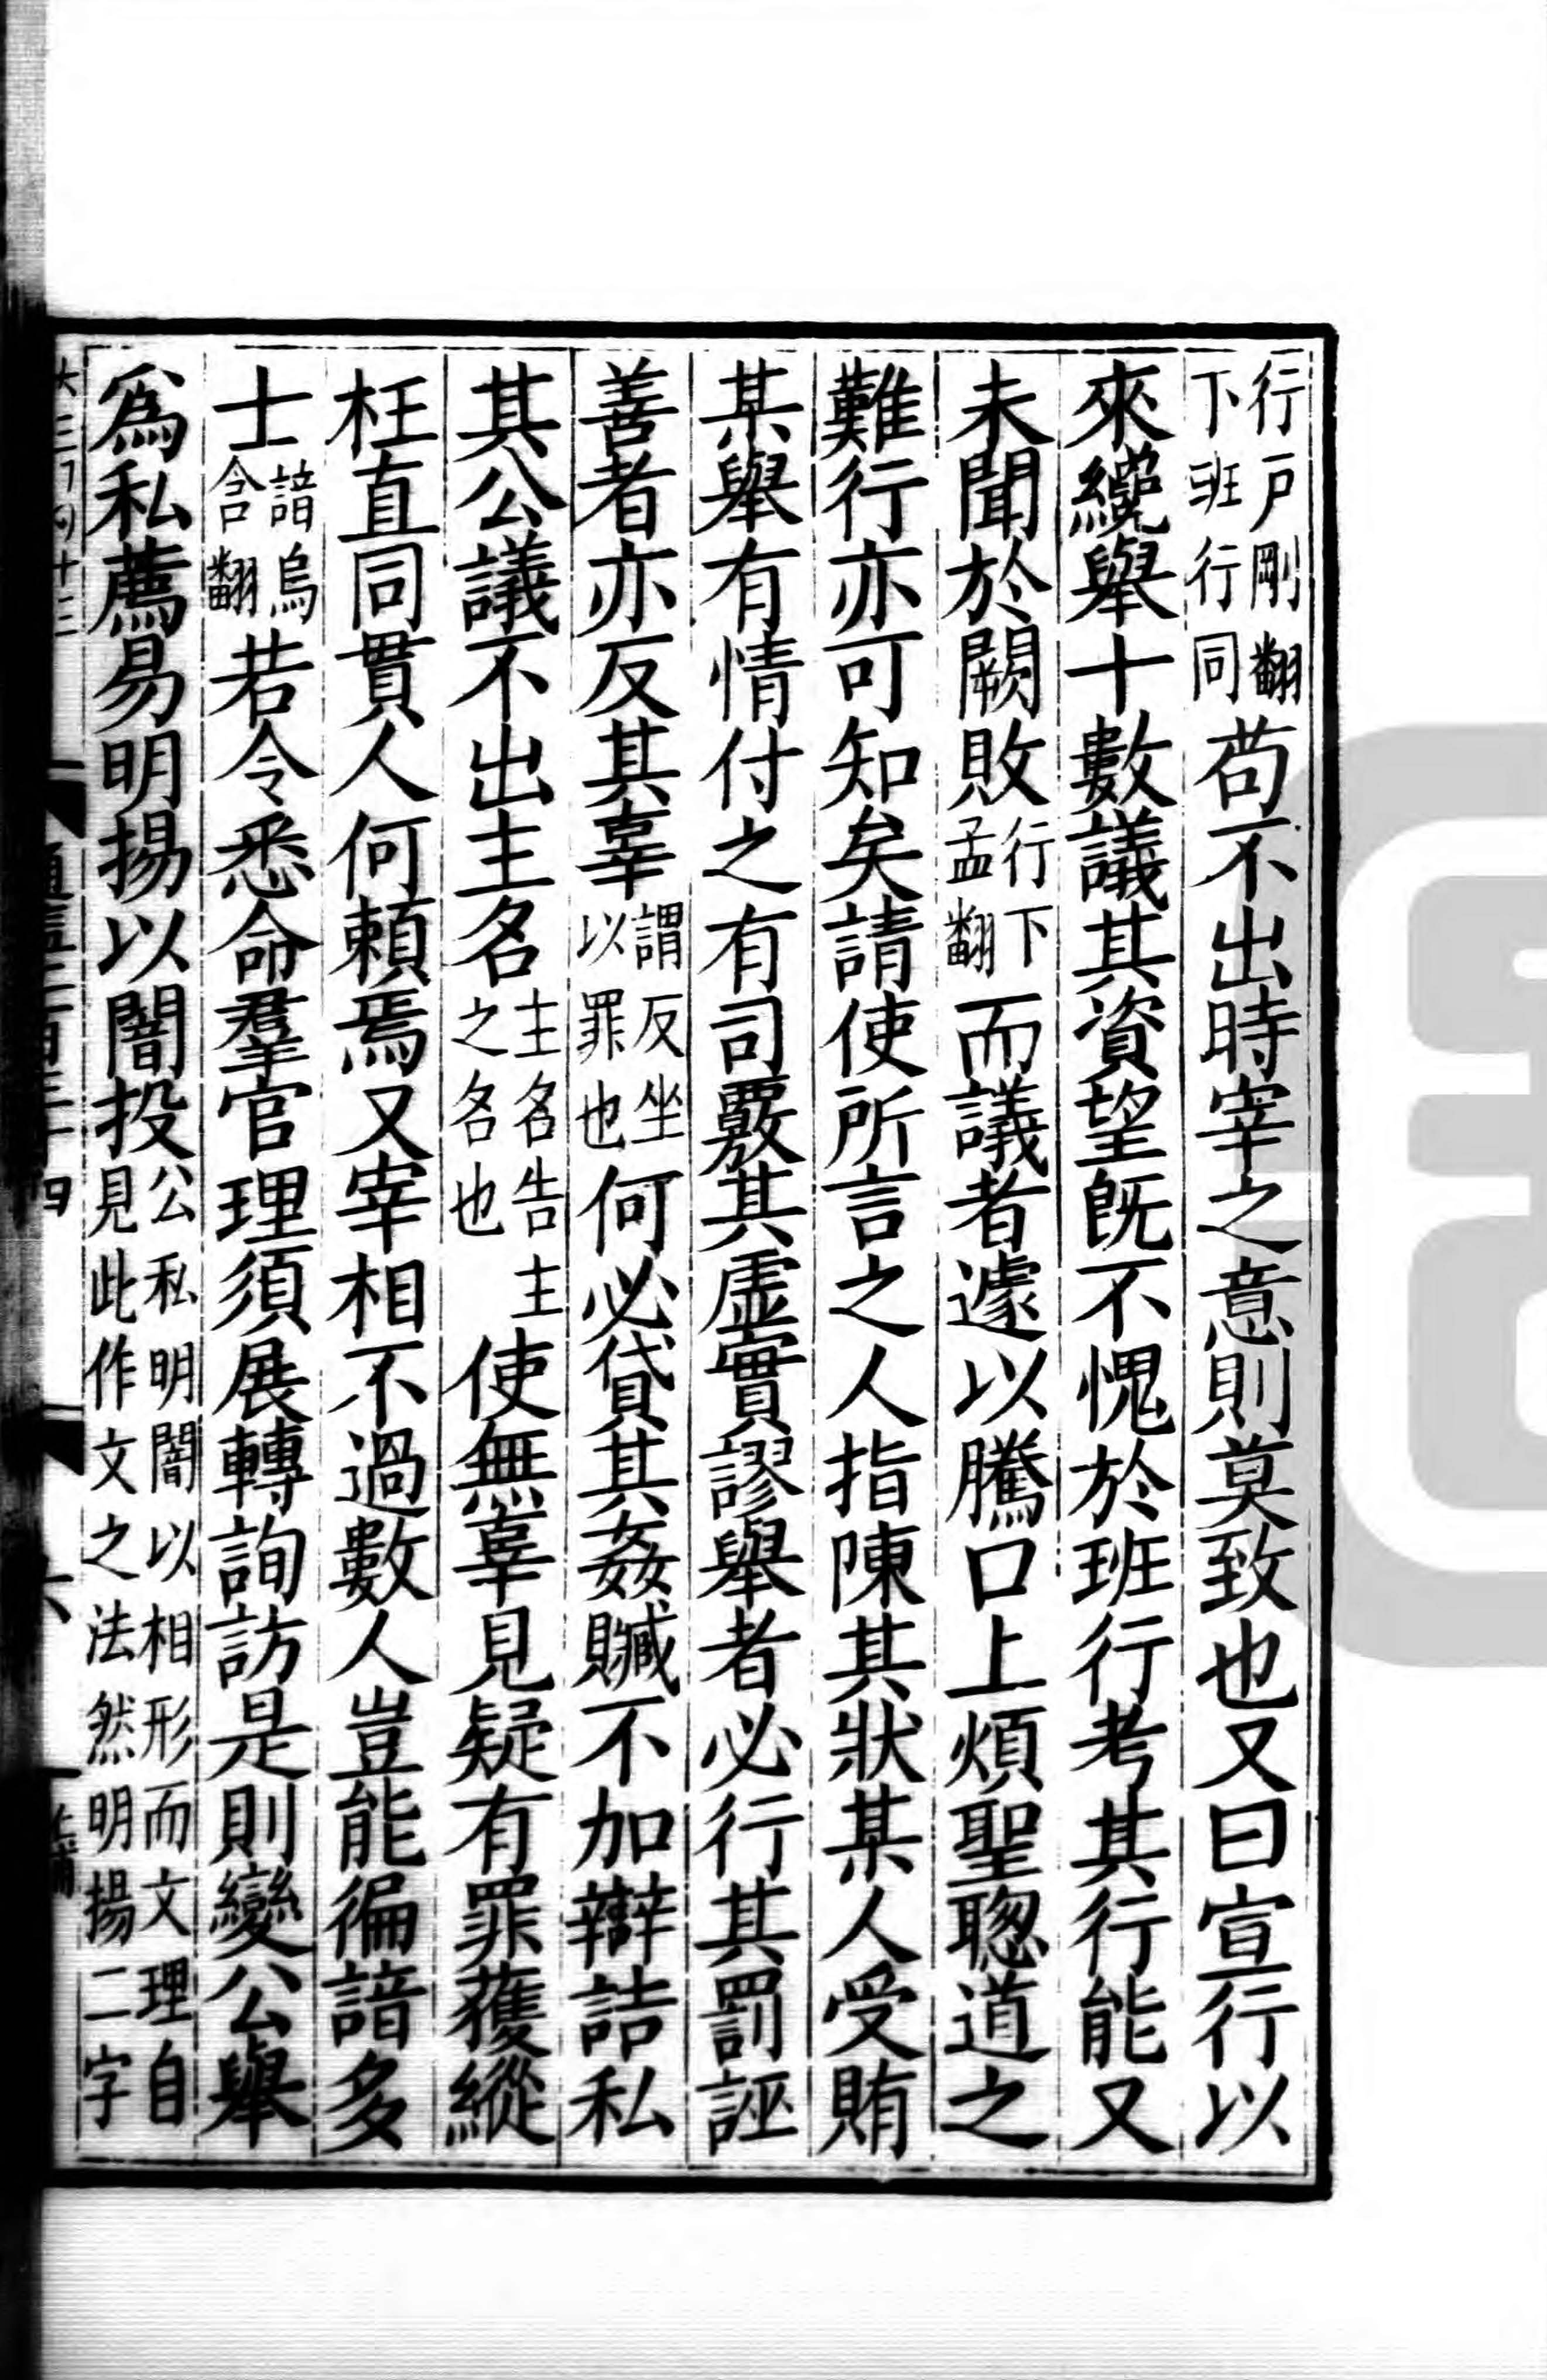 行戶剛翻下班行同苟不出時宰之意則莫致也又曰宣行以
來纔舉十數議其資望旣不愧於班行考其行能又
未聞於闕敗行下孟翻而議者遽以騰口上煩聖聦道之
難行亦可知矣請使所言之人指陳其狀某人受賄
某舉有情付之有司覈其虛實謬舉者必行其罰誣
善者亦反其辜謂反坐以罪也何必貸其姦贓不加辯詰私
其公議不出主名主名告主之名也使無辜見疑有罪獲縱
枉直同貫人何賴焉又宰相不過數人豈能徧諳多
士諳烏含翻若令悉命羣官理須展轉詢訪是則變公舉
爲私薦易明揚以闇投公私明闇以相形而文理自見此作文之法然明揚二字